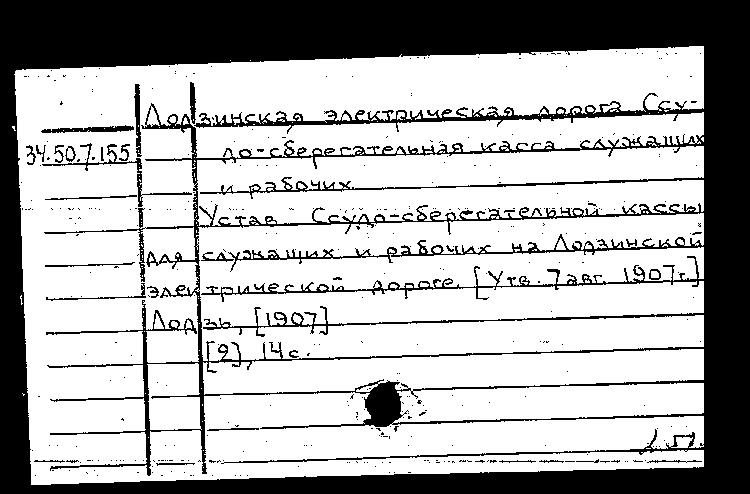 Лодзинская электрическая дорога Ссу-
34.50.7.155 до-сберегательная касса служащих
и рабочих
Устав Ссудо-сберегательной кассы
для служащих и рабочих на Лодзинской
электрической дороге. [Утв. 7 авг. 1907 г.]
Лодзь, [1907]
[2], 14 с.